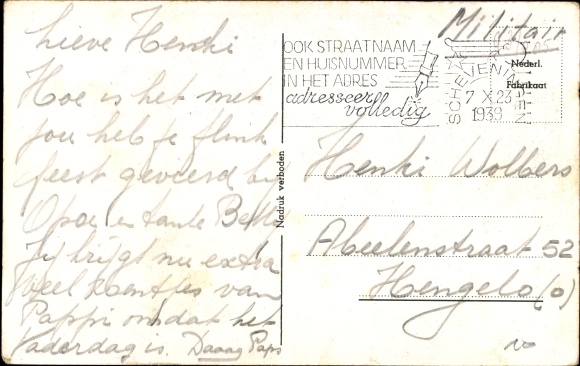 Lieve Henki
Hoe is het met
jou heb je flink
feest gevierd bij
Opoe en tante Betsie
Jij krijgt nu extra
veel kaartjes van
Pappi omdat het
Vaderdag is. Daaag Paps
Nadruk verboden
OOK STRAATNAAM
EN HUISNUMMER
IN HET ADRES
adresseer
volledig
Militair
SCHEVENINGEN
7 X 23
1939
Nederl.
Fabrikaat
Henki Wolbers
Abeelenstraat 52
Hengelo (O)